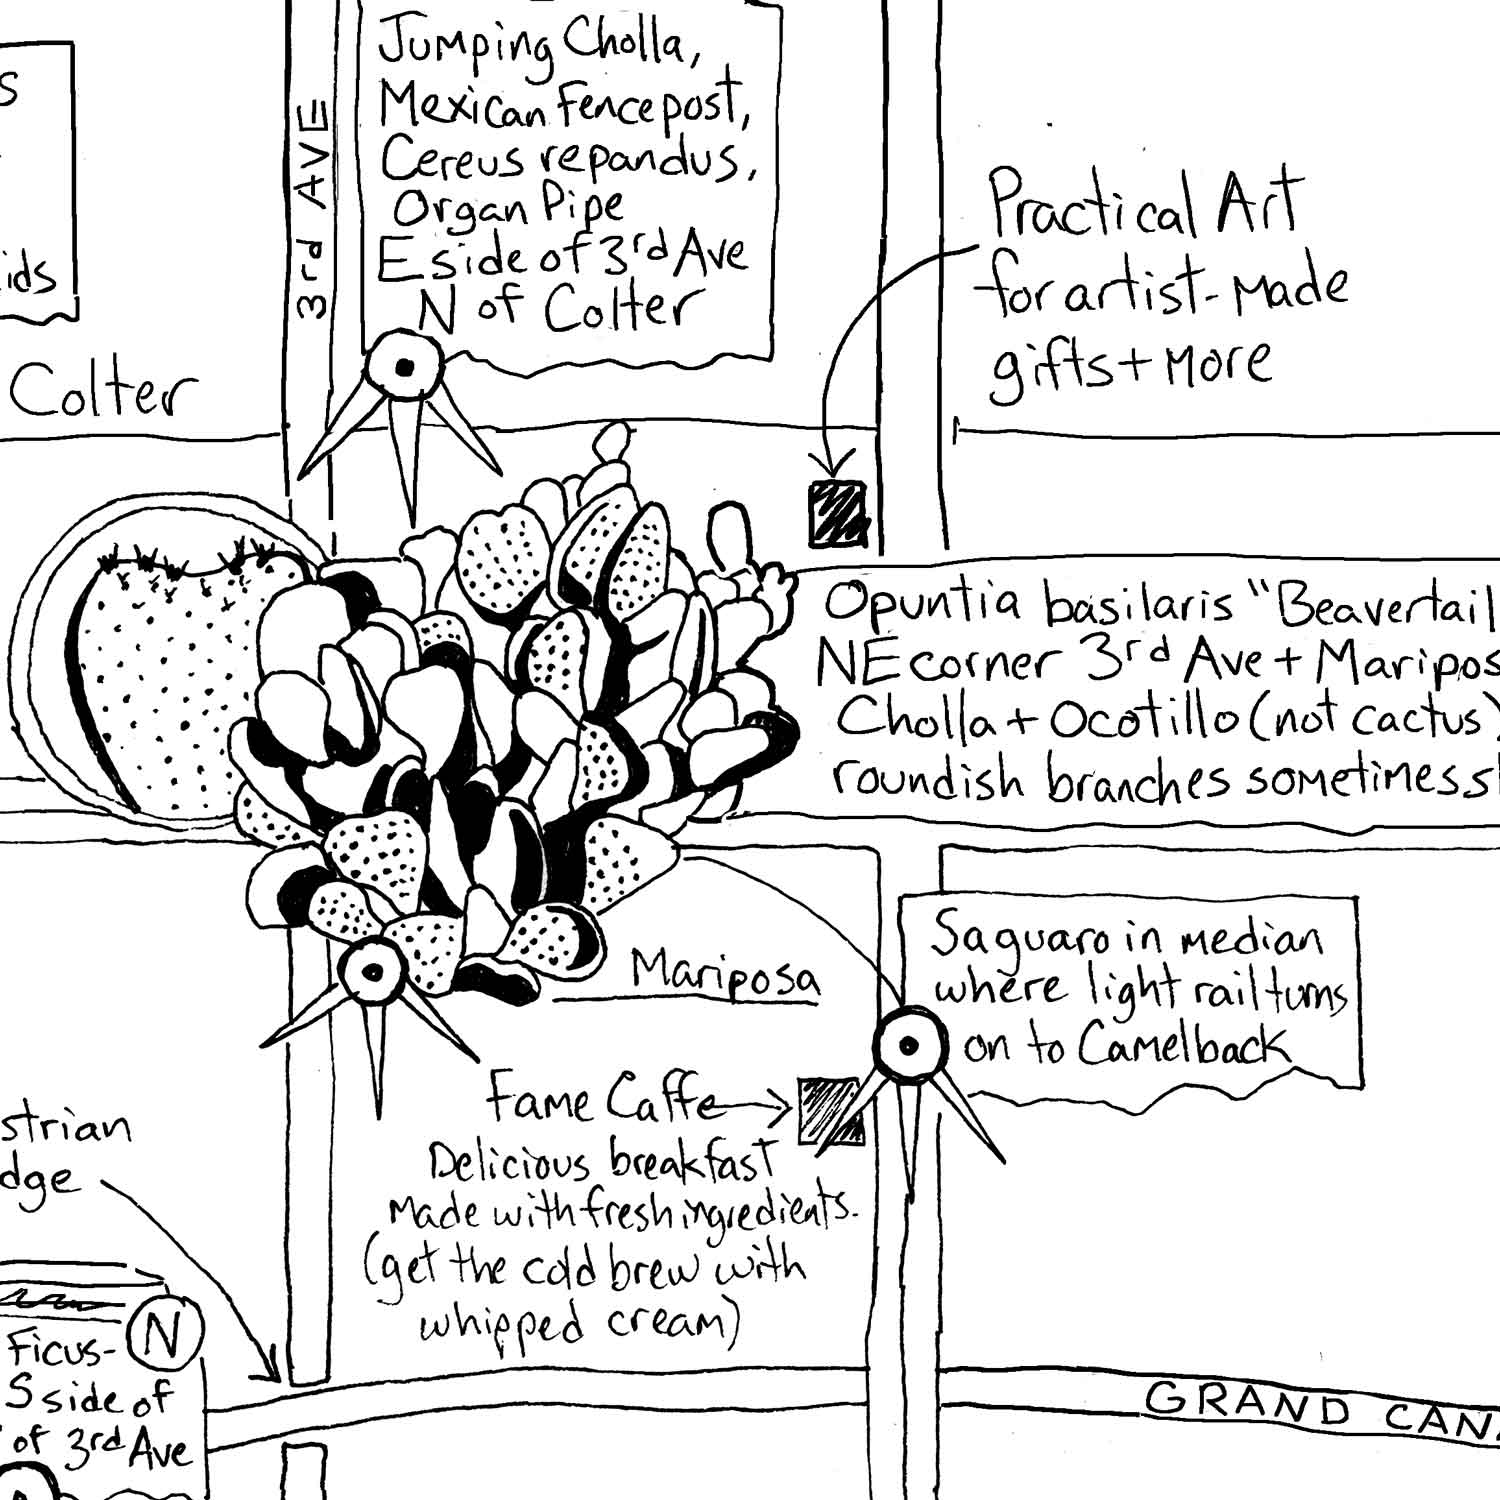 s
ids
Colter
3rd AVE
Jumping Cholla,
Mexican Fencepost,
Cereus repandus,
Organ Pipe
E side of 3rd Ave
N of Colter
Practical Art
for artist-made
gifts + more
Opuntia basilaris "Beavertail
NE corner 3rd Ave + Maripos
Cholla + Ocotillo (not cactus)
roundish branches sometimes
Mariposa
Saguaro in median
where light rail turns
on to Camelback
Fame Caffe
Delicious breakfast
made with fresh ingredients.
(get the cold brew with
whipped cream)
strian
dge
N
Ficus-
S side of
of 3rd Ave
GRAND CAN